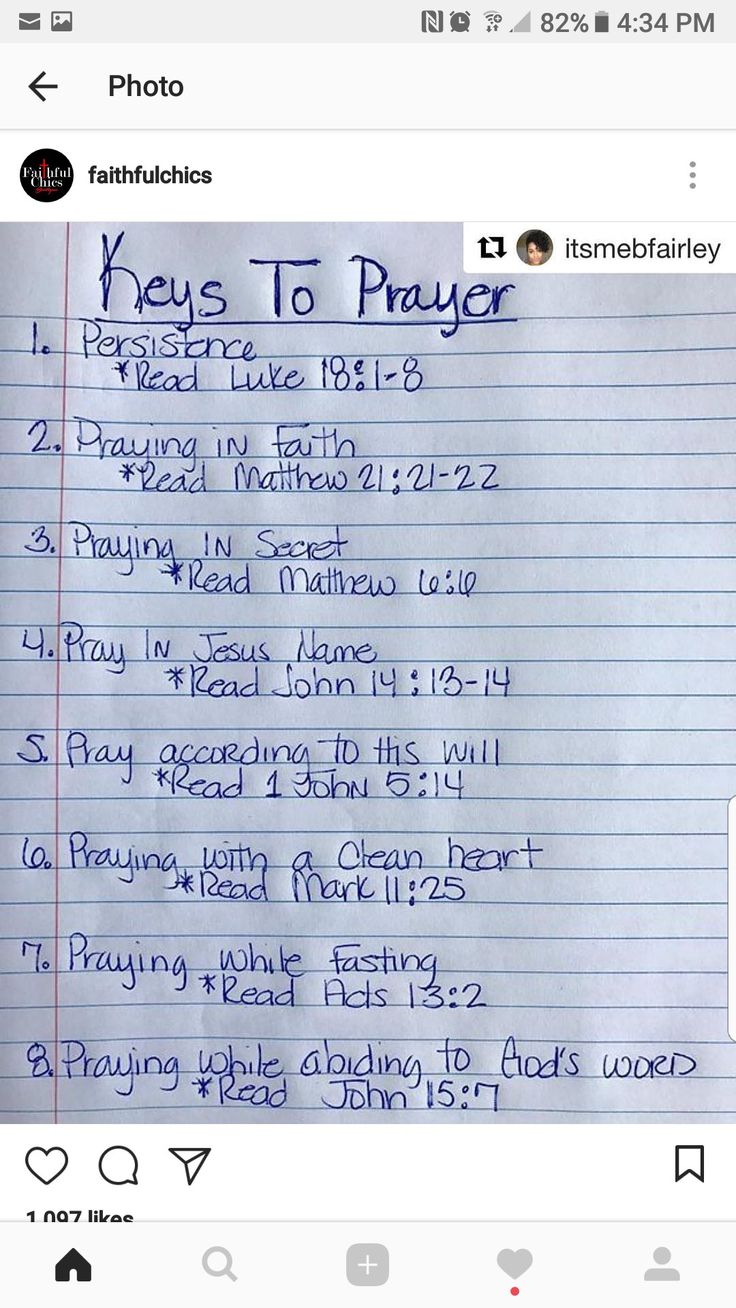 82% 4:34 PM
Photo
Faithful
Chics
faithfulchics
itsmebfairley
Keys To Prayer
1. Persistence
*Read Luke 18:1-8
2. Praying in Faith
*Read Matthew 21:21-22
3. Praying IN Secret
*Read Matthew 6:6
4. Pray IN Jesus Name
*Read John 14:13-14
5. Pray according to His will
*Read 1 John 5:14
6. Praying with a Clean heart
*Read Mark 11:25
7. Praying while fasting
*Read Acts 13:2
8. Praying while abiding to God's word
*Read John 15:7
1,097 likes